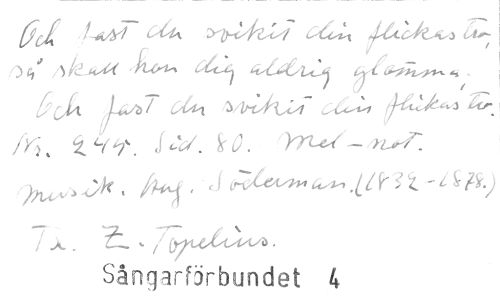 Och fast du svikit din flickas tro,
så skall hon dig aldrig glömma,
Och fast du svikit din flickas tro.
Nr. 249. Sid. 80. Mel-not.
Musik. Aug. Söderman. (1832-1878.)
Tr. Z. Topelius.
Sångarförbundet 4